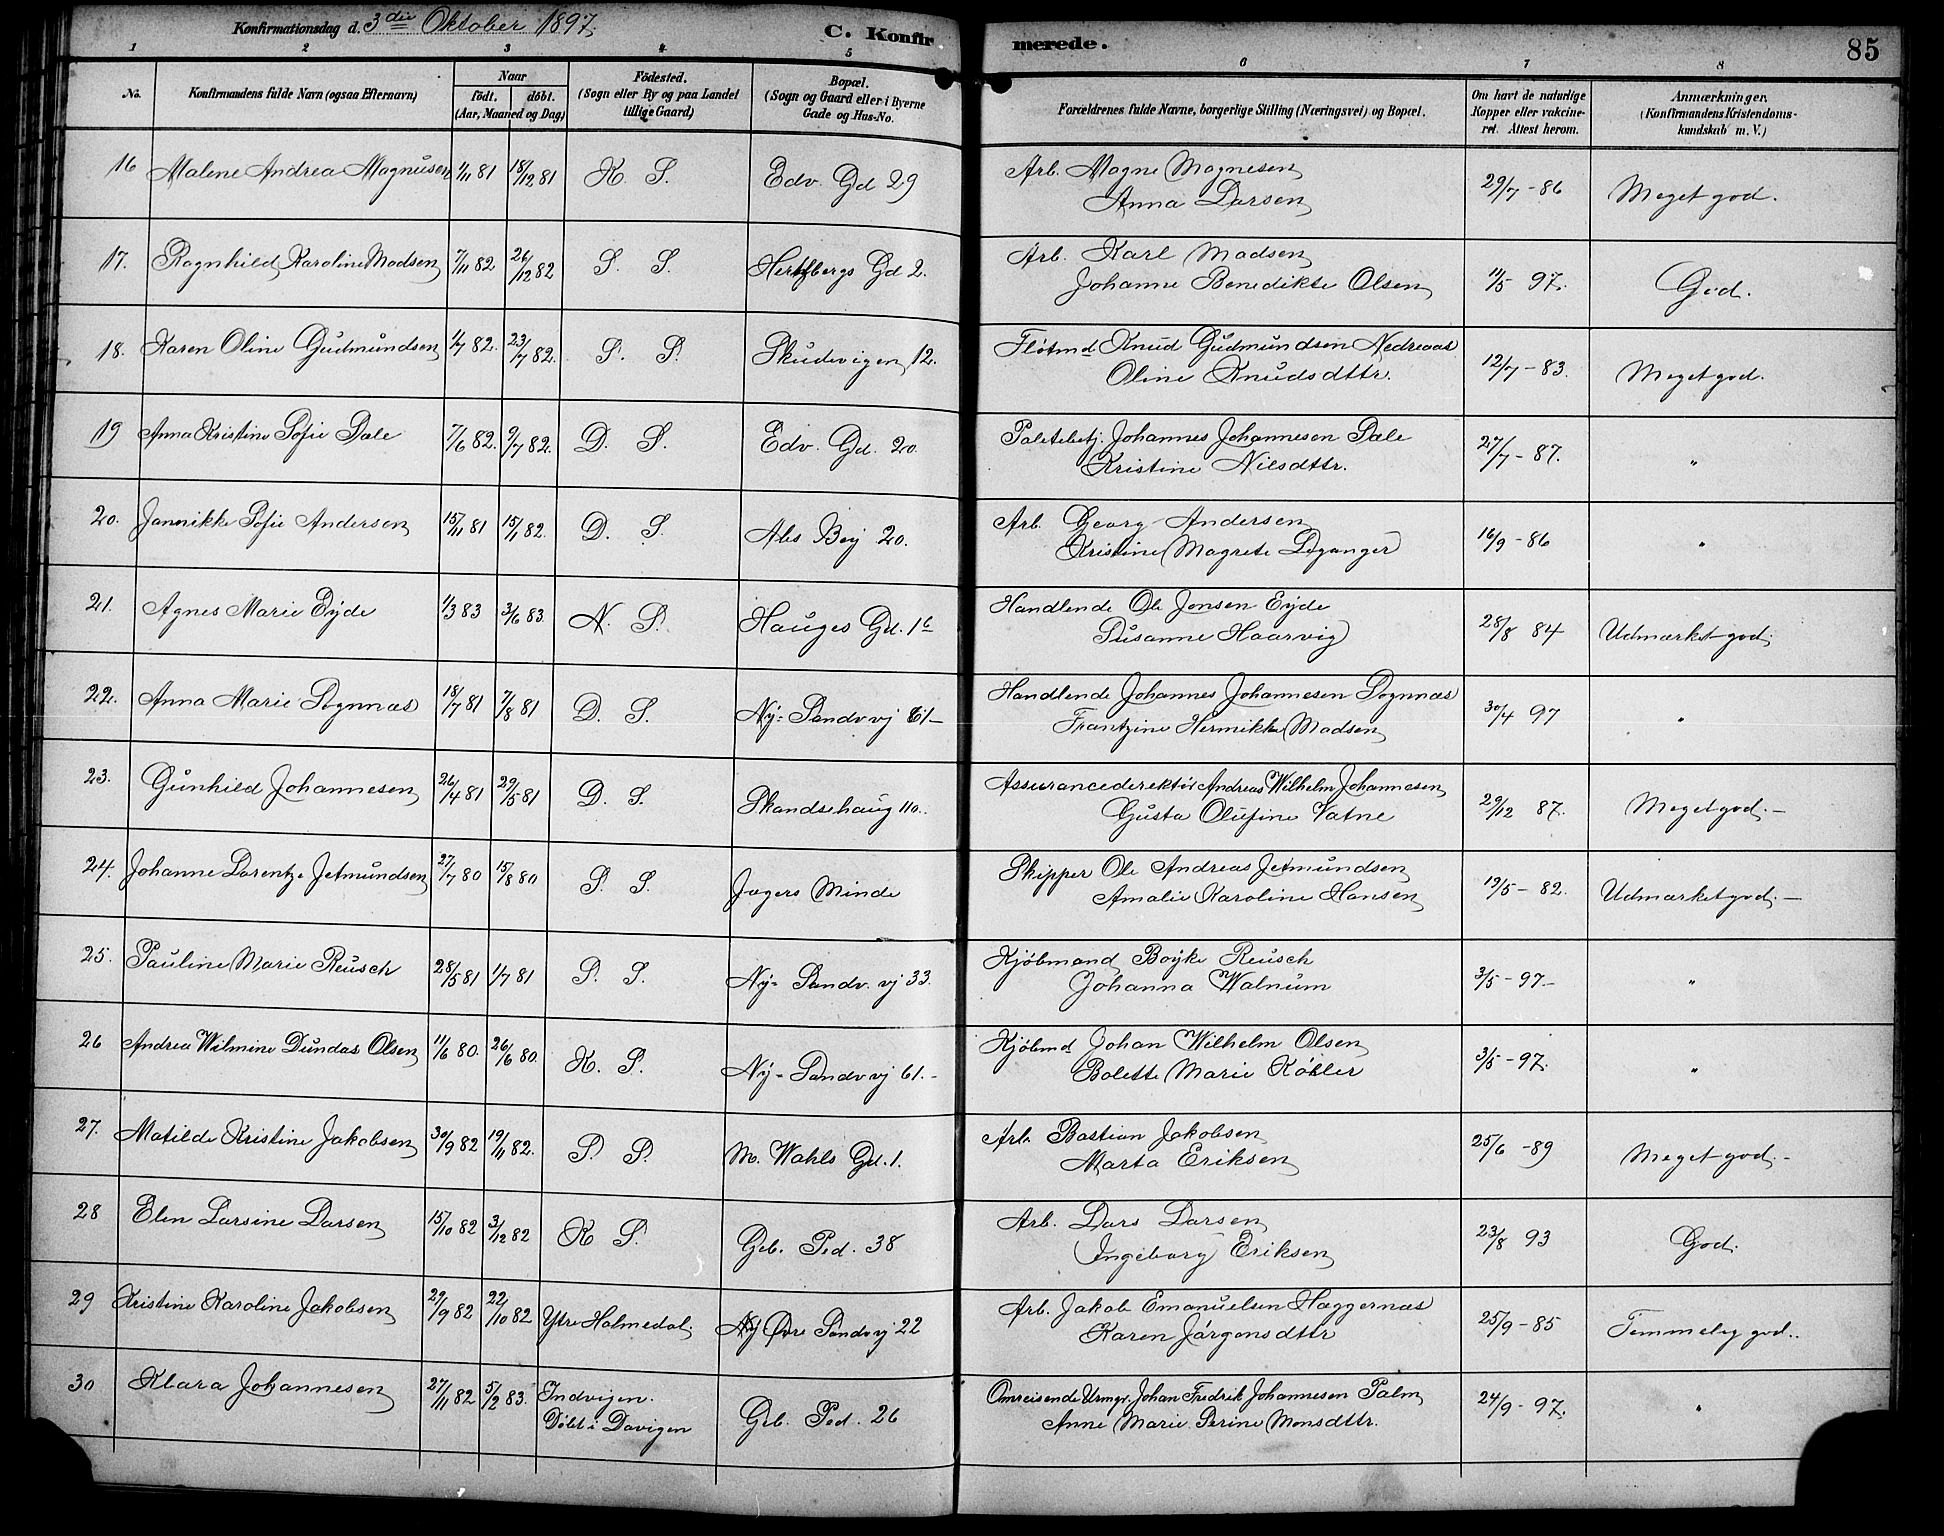 Konfirmationsdag d. 3die Oktober 1897.
C. Konfirmerede.
85
1 2 3 4 5 6 7 8
No. Konfirmandens fulde Navn (ogsaa Efternavn) Naar födt. döbt. (Aar, Maaned og Dag) Födested. (Sogn eller By og paa Landet tillige Gaard) Bopæl. (Sogn og Gaard eller i Byerne Gade og Hus-No. Forældrenes fulde Navne, borgerlige Stilling (Næringsvei) og Bopæl. Om havt de naturlige Kopper eller vakcineret. Attest herom. Anmærkninger. (Konfirmandens Kristendomskundskab m. V.)
16 Malene Andrea Magnusen 1/11 81 18/12 81 K. S. Edv. Gd 29 Arb. Magne Magnesen
Anna Larsen 29/7 - 86 Meget god.
17. Ragnhild Karoline Madsen 7/11 82 26/12 82 S. S. Hertzbergs Gd 2. Arb. Karl Madsen
Johanne Benedikte Olsen 11/5 97. God.
18. Karen Oline Gudmundsen 1/7 82. 23/7 82. S. S. Skudevigen 12. Flötmd Knud Gudmundsen Nedreaas
Oline Knudsdttr. 12/7 - 83. Meget god.
19 Anna Kristine Sofie Dale 7/6 82. 9/7 82. D. S. Edv. Gd. 20. Johannes Johannesen Dale
Kristine Nilsdttr. 27/7 - 87. "
20. Jannikke Sofie Andersen 15/11 81 15/1 82. D. S. Abs Bej 20. Arb. Georg Andersen
Kristine Magrete Leganger 16/9 - 86 "
21. Agnes Marie Eyde 1/3 83 3/6 83. N. S. Hauges Gd. 16 Handlende Ole Jonsen Eyde
Susanne Haarvig 28/8 84 Udmærket god.
22. Anna Marie Sognnæs 18/7 81 7/8 81 D. S. Ny= Sandv vj 61 - Handlende Johannes Johannesen Sognnæs
Frantzine Hermikke Madsen 30/4 97 "
23. Gunhild Johannesen 26/4 81 29/5 81 D. S. Skandsehaug 110. Assurancedirektör Andreas Wilhelm Johannesen
Gusta Olufine Vatne 29/12 87. Meget god. -
24. Johanne Lorentze Jetmundsen 27/7 80 15/8 80 S. S. Jægers Minde Skipper Ole Andreas Jetmundsen
Amalie Karoline Hansen 19/5 - 82. Udmærket god. -
25. Pauline Marie Reusch 28/5 81 1/7 81 S. S. Ny= Sandv. vj 33. Kjöbmand Boyke Reusch
Johanna Walnum 3/5 - 97 - "
26 Andrea Wilmine Dundas Olsen 11/6 80. 26/6 80. K. S. Ny= Sandv vj 61. - Kjöbmd Johan Wilhelm Olsen
Bolette Marie Köhler 3/5 - 97. "
27. Matilde Kristine Jakobsen 30/9 82 19/11 82. S. S. M. Wahls Gd. 1. Arb. Bastian Jakobsen
Marta Eriksen 25/6 - 89 Meget god. -
28 Elen Larsine Larsen 15/10 82 3/12 82 K S. Geb. Sed. 38 Arb. Lars Larsen
Ingeborg Eriksen 23/8 93 God.
29 Kristine Karoline Jakobsen 29/9 82 22/10 82 Ytre Holmedal. Øvre Sandvj 22 Arb. Jakob Emanuelsen Haggernæs
Karen Jörgensdttr 25/9 - 85 Temmelig god.
30 Klara Johannesen 27/11 82 5/2 83. Indvigen.
Döbt i Davigen Geb. Sed. 26 Omreisende Urmgr. Johan Fredrik Johannesen Palm
Anne Marie Serine Monsdttr. 24/9 - 97. "